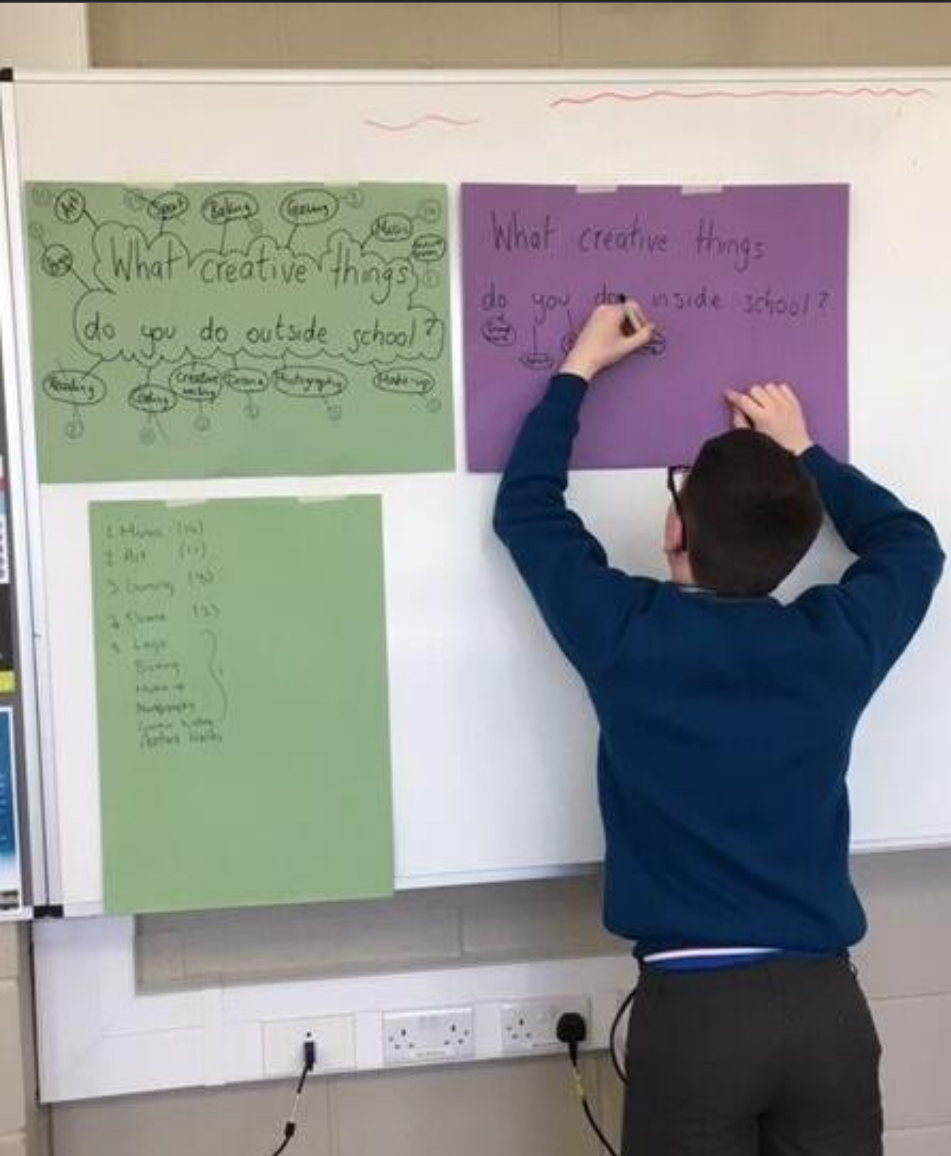 Art
Sport
Baking
Gaming
Music
What creative things
do you do outside school?
Reading
Coding
Creative
writing
Drama
Photography
Make-up
What creative things
do you do inside school?
Sport
1 Music (14)
2 Art (11)
3 Gaming (3)
4 Drama (2)
5 Lego
Baking
Make-up
Photography